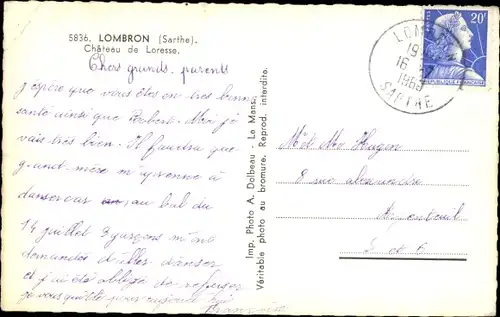 5836. LOMBRON (Sarthe).
Château de Loresse.
Chers grands. parents
J'espère que vous êtes en très bonne
santé ainsi que Robert. Moi je
vais très bien. Il faudra que
grand-mère m'
danser car au bal du
14 juillet 3 garçons m'
demandée d'aller danser
et j'ai été obligée de refuser
je vous quitte pour aujourd'hui
Imp. Photo A. Dolbeau - Le Mans.
Véritable photo au bromure. Reprod. interdite.
20F
LOMBRON
16 -7
SARTHE
Mr et Mme
8 rue
Argenteuil
S et O